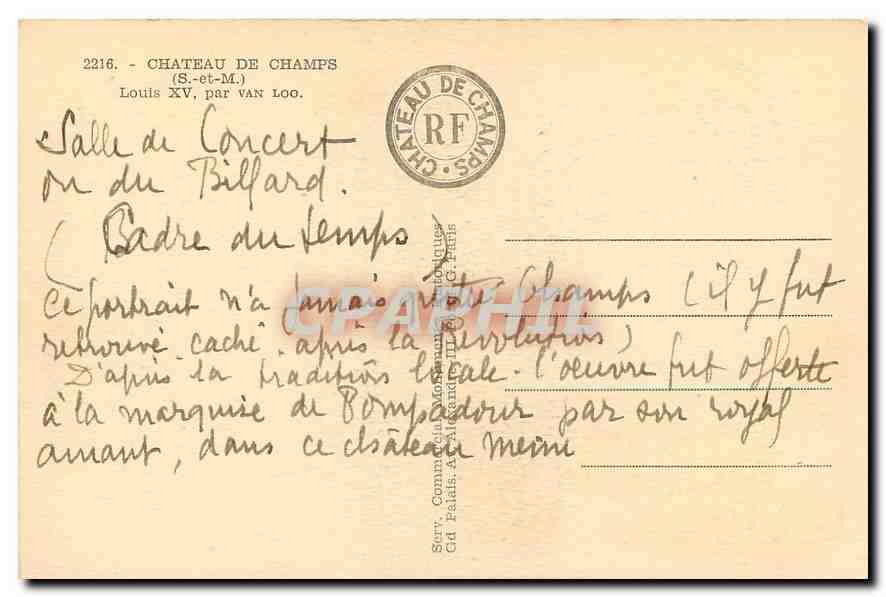 2216. - CHATEAU DE CHAMPS
(S.-et-M.)
Louis XV, par VAN LOO.
CHATEAU DE CHAMPS
RF
Salle de Concert
ou du Billard.
(Cadre du temps)
Ce portrait n'a jamais quitté Champs (il y fut
retrouvé caché après la Révolution)
D'après la tradition locale l'oeuvre fut offerte
à la marquise de Pompadour par son royal
amant, dans ce château meme
Serv. Commercial Monuments Historiques
Gd Palais. Av. Alexandre III. G. Paris
CPAPHIL